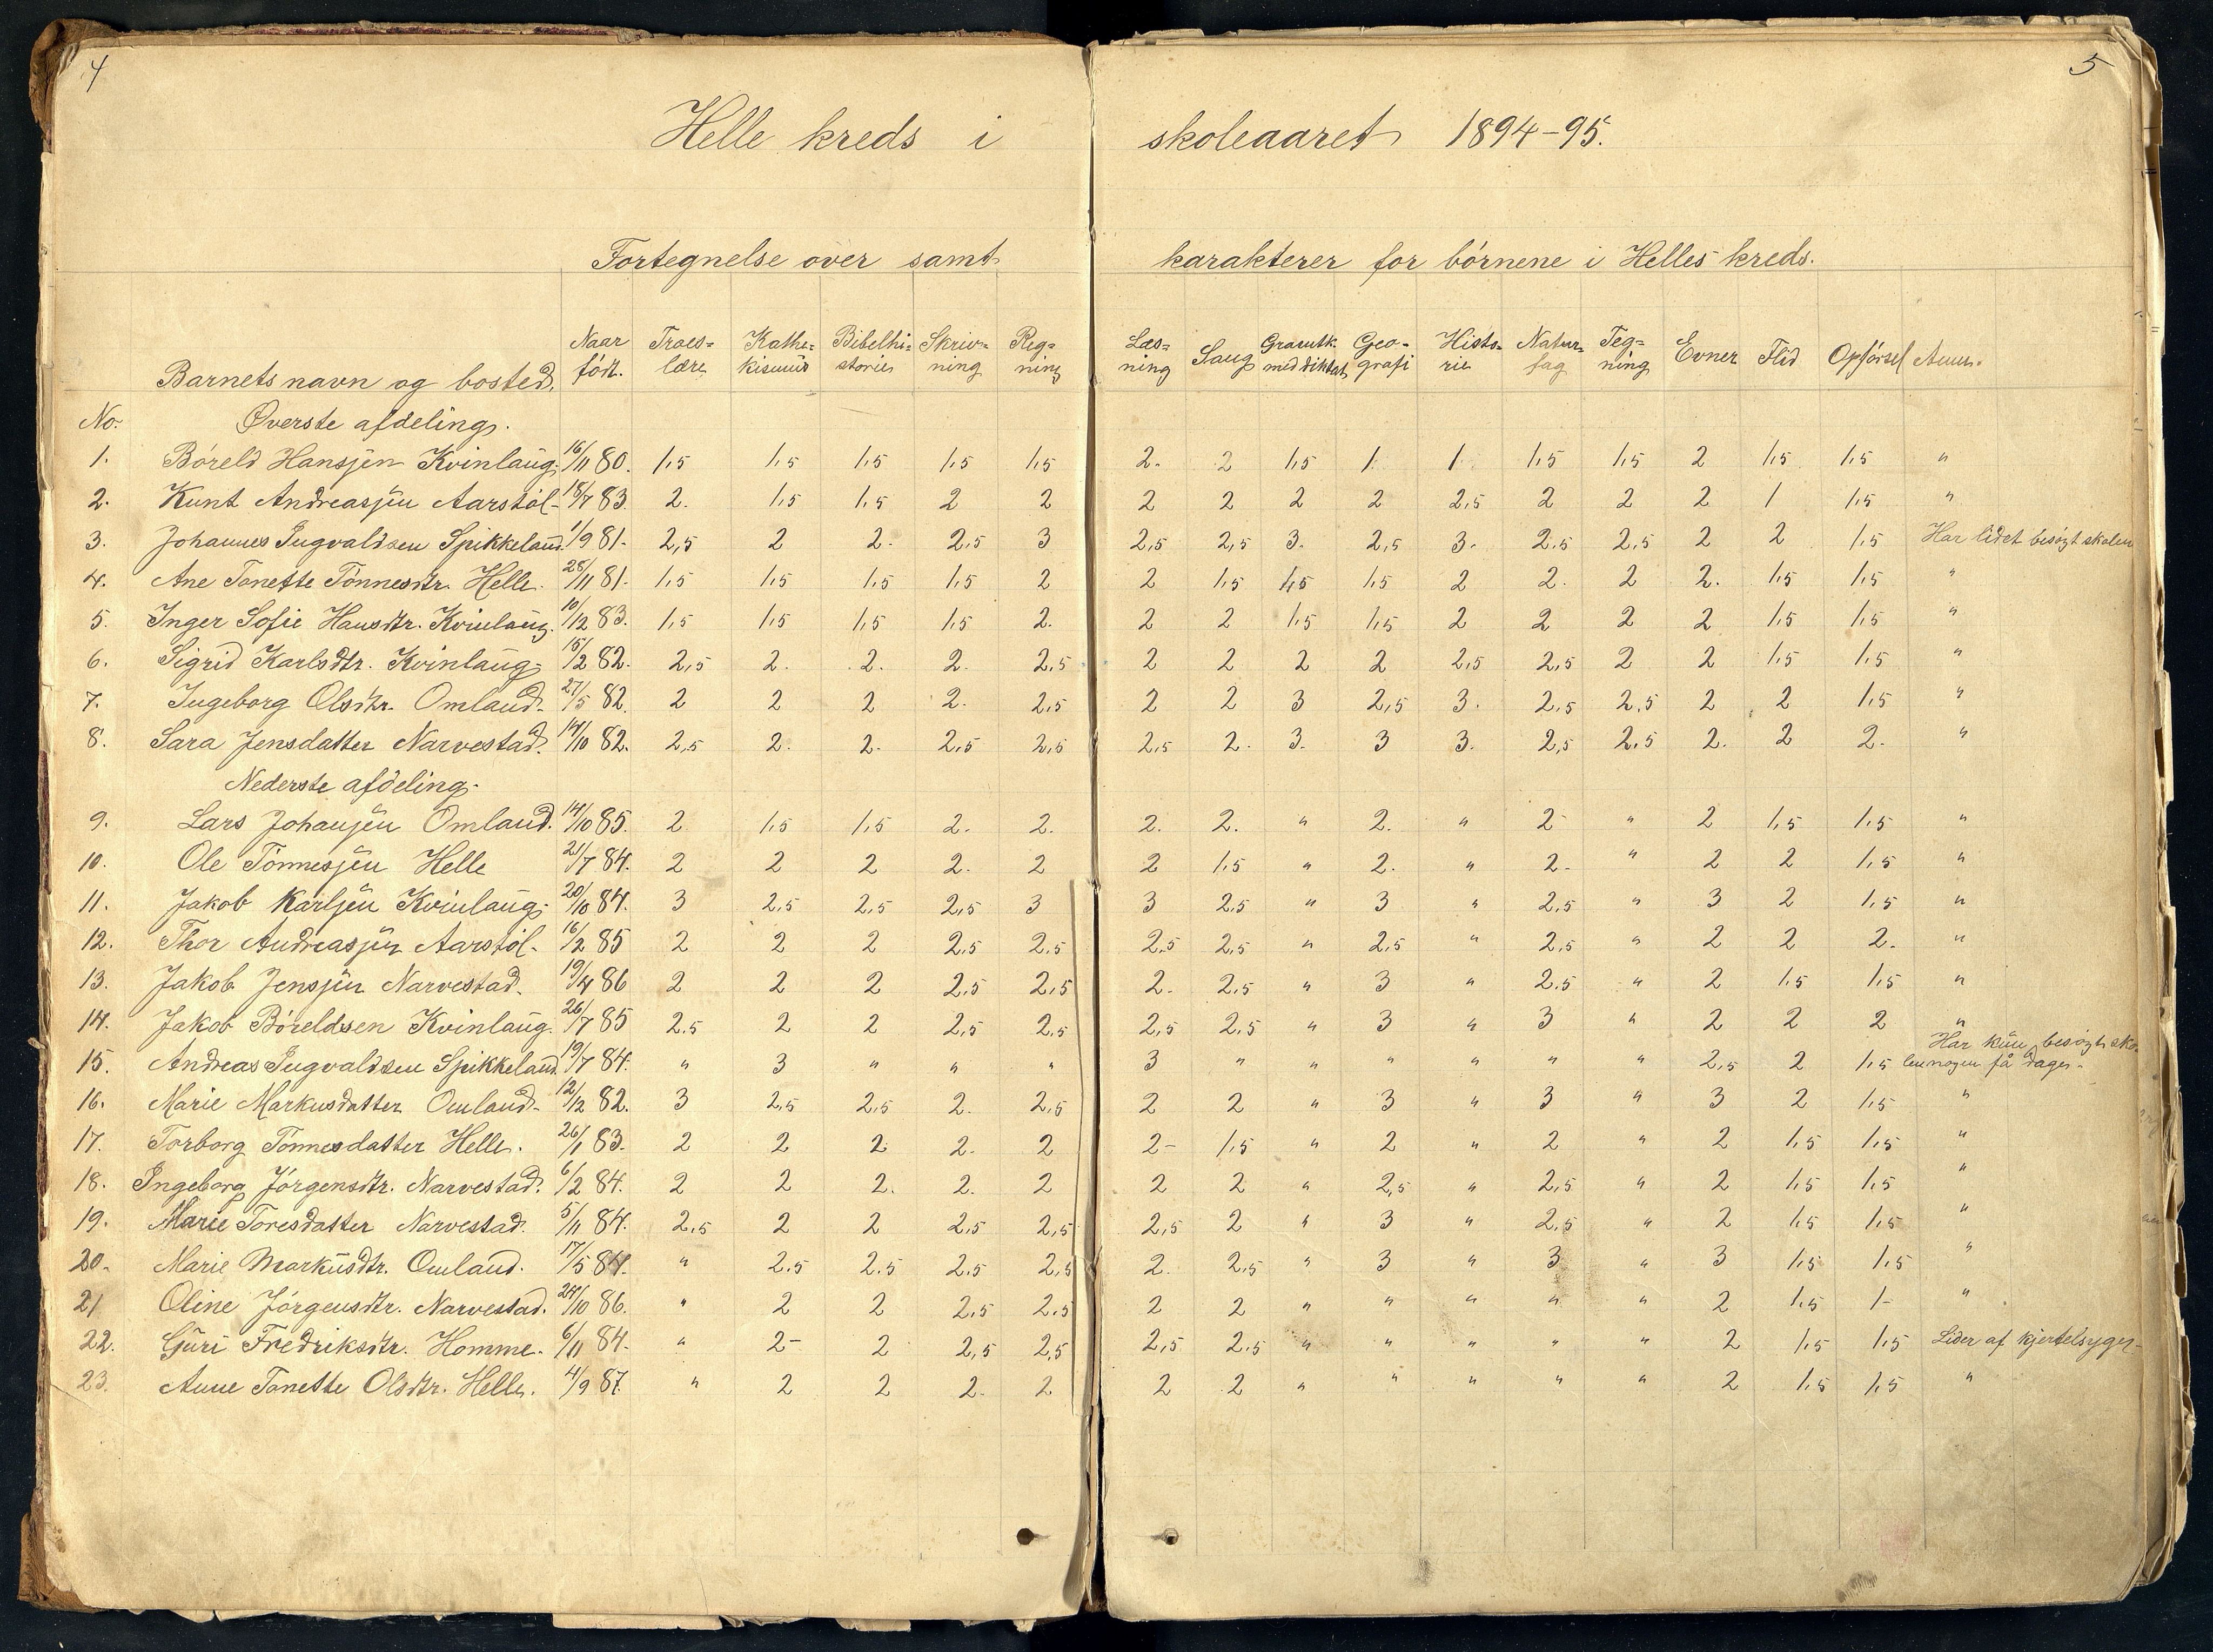 4 5
Helle kreds i skoleaaret 1894-95.
Fortegnelse over samt karakterer for börnene i Helles kreds.
No. Barnets navn og bosted. Naar föd. Troes=lære Kathe=kismus Bibelhi=storie Skriv=ning Reg=ning Læs=ning Sang Gramtk. med diktat Geo-grafi Histo-rie Natur-fag Teg=ning Evner Flid Opförsel Anm.
Øverste afdeling.
1. Böreld Hansjen Kvinlaug. 16/11 80. 1,5 1,5 1,5 1,5 1,5 2. 2 1,5 1 1 1,5 1,5 2 1,5 1,5 "
2. Kunt Andreasjen Aarstöl- 18/7 83. 2. 1,5 1,5 2 2 2 2 2 2 2,5 2 2 2 1 1,5 "
3. Johannes Ingvaldsen Spikkeland. 1/9 81. 2,5 2 2. 2,5 3 2,5 2,5 3. 2,5 3. 2.5 2,5 2 2 1,5 Har lidet besögt skolen
4. Ane Tonette Tönnesdtr. Helle. 28/11 81. 1,5 1,5 1,5 1,5 2 2 1,5 1,5 1,5 2 2. 2 2. 1,5 1,5 "
5. Inger Sofie Hansdtr. Kvinlaug. 10/12 83. 1,5 1,5 1,5 1,5 2. 2 2 1,5 1,5 2 2 2 2 1,5 1,5 "
6. Sigrid Karlsdtr. Kvinlaug- 15/2 82. 2,5 2. 2. 2. 2.5 2 2 2 2 2,5 2,5 2 2 1,5 1,5 "
7. Ingeborg Olsdtr. Omland. 27/5 82. 2 2 2 2. 2,5 2 2 3 2,5 3. 2,5 2,5 2 2 1,5 "
8. Sara Jensdatter Narvestad. 14/10 82. 2,5 2. 2. 2,5 2,5 2,5 2. 3. 3 3. 2,5 2,5 2. 2 2. "
Nederste afdeling.
9. Lars Johanjen Omland. 14/10 85. 2 1,5 1,5 2. 2. 2. 2. " 2. " 2 " 2 1,5 1,5 "
10. Ole Tönnesjen Helle 21/7 84. 2 2 2 2. 2 2 1,5 " 2. " 2. " 2 2 1,5 "
11. Jakob Karljen Kvinlaug. 20/10 84. 3 2,5 2,5 2,5 3 3 2,5 " 3 " 2,5 " 3 2 1,5 "
12. Thor Andreasjen Aarstöl- 16/2 85 2 2 2 2,5 2,5 2.5 2,5 " 2,5 " 2,5 " 2 2 2. "
13. Jakob Jensjen Narvestad. 19/4 86 2 2 2 2,5 2,5 2. 2,5 " 3 " 2.5 " 2 1,5 1,5 "
14. Jakob Böreldsen Kvinlaug. 26/7 85 2.5 2 2 2,5 2,5 2,5 2,5 " 3 " 3 " 2 2 2 "
15. Andreas Ingvaldsen Spikkeland. 19/7 84. " 3 " " " 3 " " " " " " 2,5 2 1,5 Har kun besögt sko-
len nogen få dager.
16. Marie Markusdatter Omland. 12/12 82. 3 2,5 2,5 2. 2,5 2 2 " 3 " 3 " 3 2 1,5 "
17. Torborg Tönnesdatter Helle. 26/1 83. 2 2 2 2. 2 2- 1,5 " 2 " 2 " 2 1,5 1,5 "
18. Ingeborg Jörgensdtr. Narvestad. 6/2 84. 2 2 2. 2. 2 2 2 " 2,5 " 2,5 " 2 1,5 1,5 "
19. Marie Toresdatter Narvestad. 5/11 84. 2.5 2 2 2,5 2,5 2,5 2 " 3 " 2,5 " 2 1,5 1,5 "
20. Marie Markusdtr. Omland. 17/5 84. " 2.5 2.5 2.5 2,5 2. 2.5 " 3 " 3 " 3 1,5 1,5 "
21 Oline Jörgensdtr. Narvestad. 24/10 86. " 2 2 2,5 2,5 2 2 " " " " " 2 1,5 1- "
22. Guri Fredriksdtr. Homme. 6/11 84. " 2- 2 2,5 2,5 2,5 2.5 " " " " " 2 1,5 1,5 Lider af kjertelsyge-
23. Anne Tonette Olsdtr. Helle. 4/9 87. " 2 2 2. 2 2 2 " " " " " 2 1,5 1,5 "